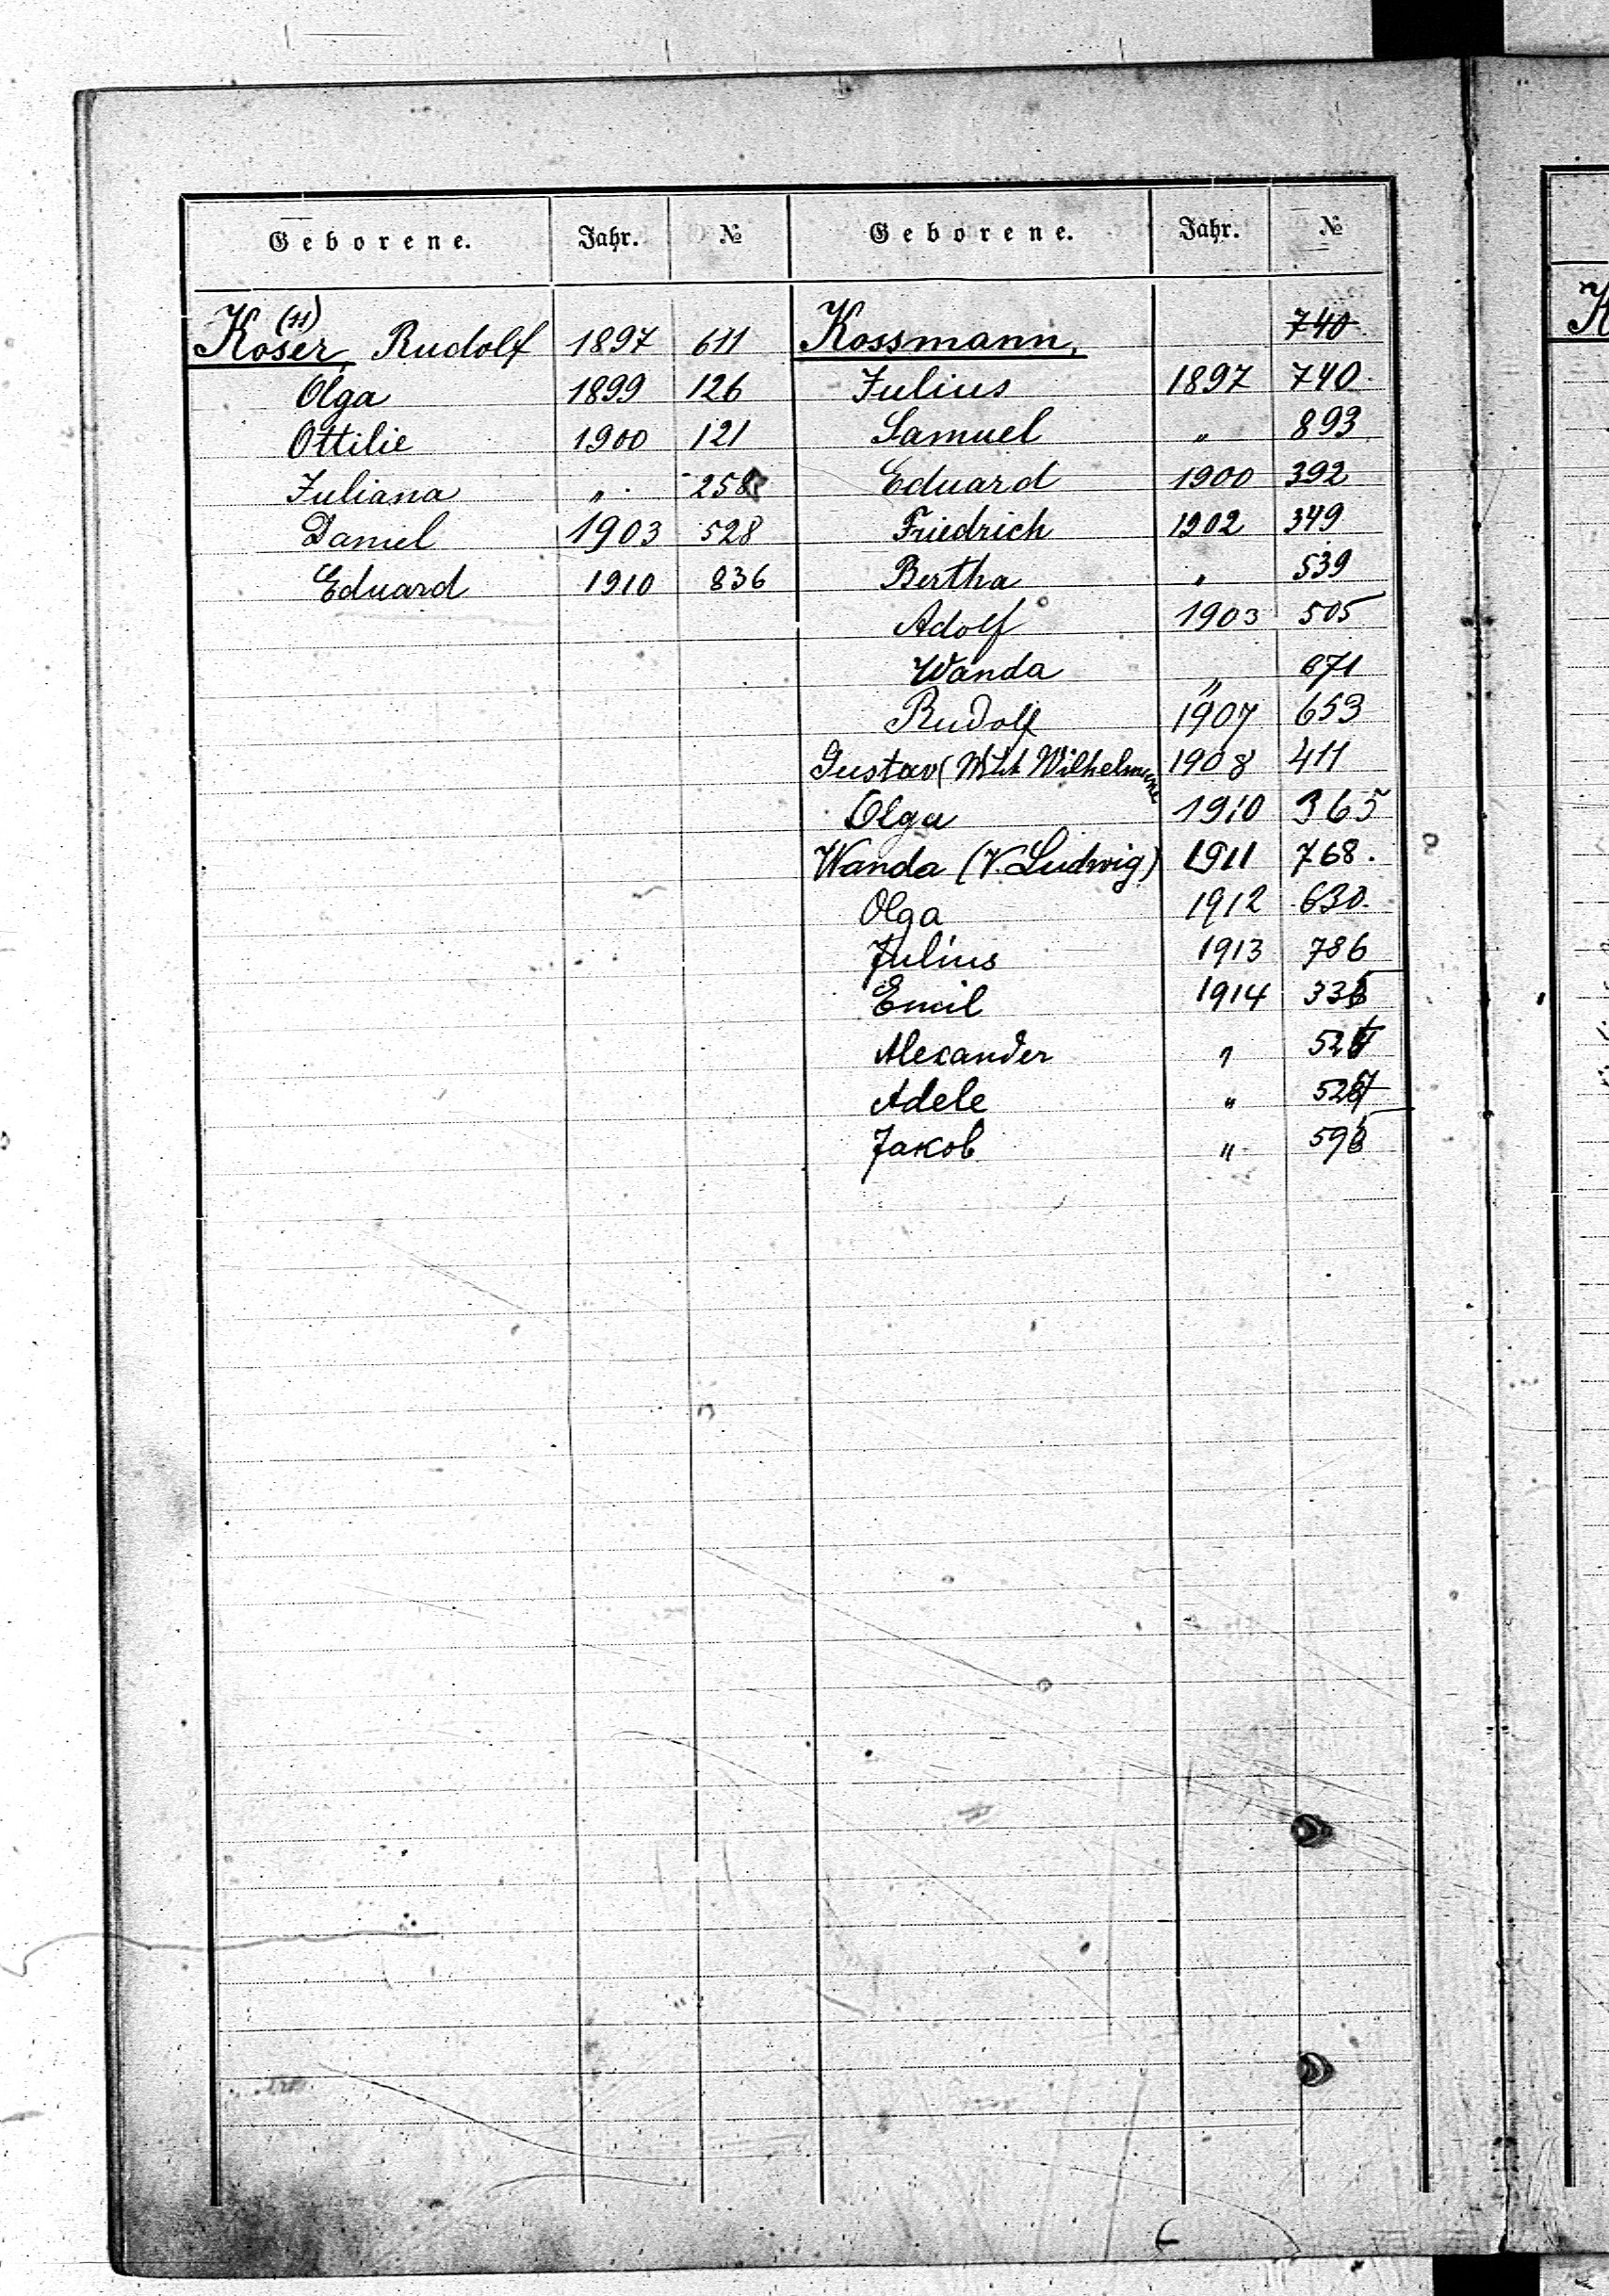 Geborene. Jahr. № Geborene. Jahr. №
Koser (11) Rudolf 1897 611
Olga 1899 126
Ottilie 1900 121
Juliana " 258
Daniel 1903 528
Eduard 1910 836
Kossmann, 740
Julius 1897 740.
Samuel " 893
Eduard 1900 392
Friedrich 1902 349
Bertha " 539
Adolf 1903 505
Wanda " 671
Rudolf 1907 653
Gustav ( Wilhelmine 1908 411
Olga 1910 365
Wanda (V. Ludwig) 1911 768.
Olga 1912 630.
Julius 1913 786
Emil 1914 335
Alexander " 524
Adele " 527
Jakob " 595
K